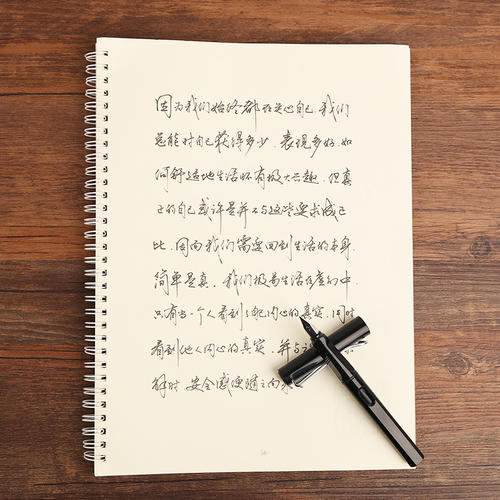 因为我们始终都在关心自己,我们
总能对自己获得多少,表现多好,如
何舒适地生活怀有极大兴趣,但真
正的自己或许是并不与这些要求成正
比,因而我们需要回到生活的本身,
简单是真,我们极易生活在虚幻中,
只有当一个人看到自己内心的真实,同时
看到他人内心的真实,并与
时 安全感便随之而来